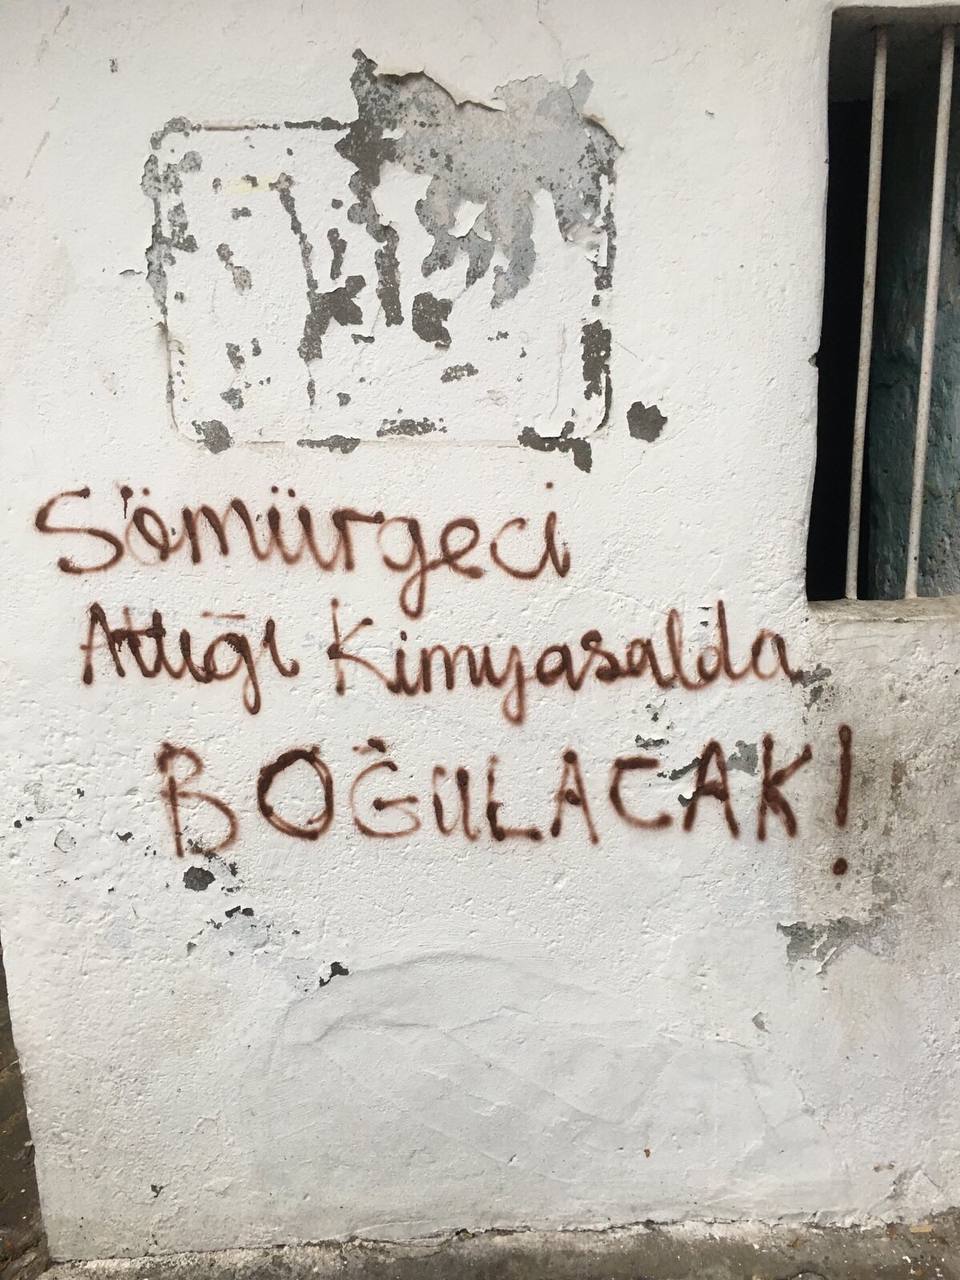 Sömürgeci
Attığı Kimyasalda
BOĞULACAK!